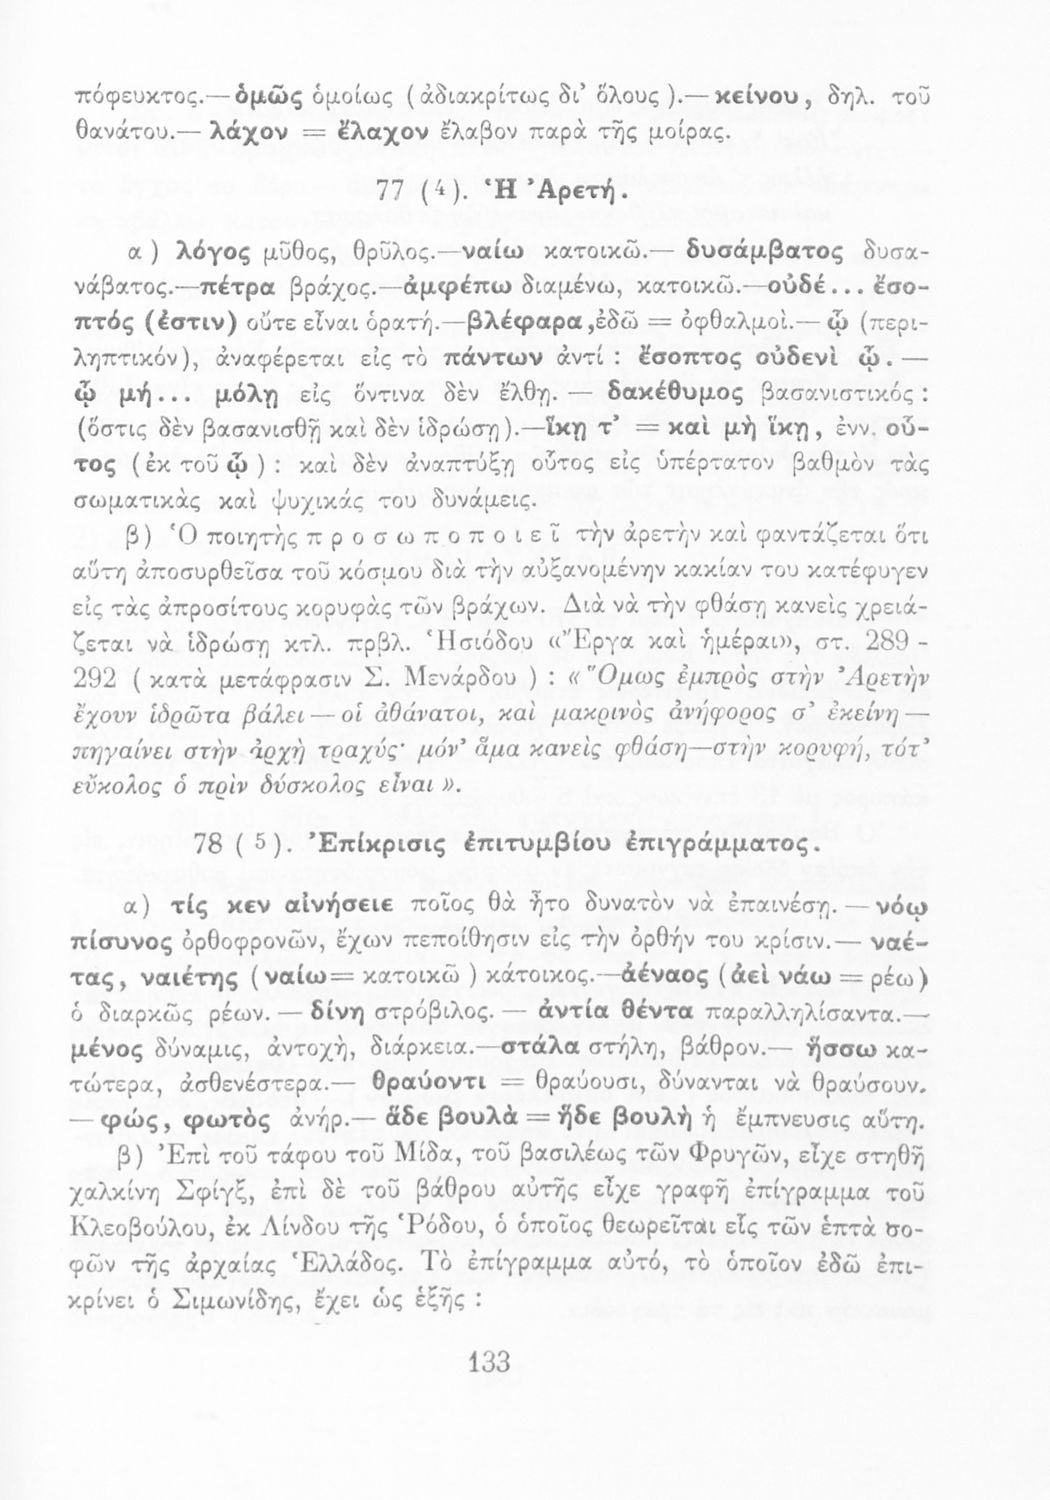 πόφευκτος.— ὁμῶς ὁμοίως (ἀδιακρίτως δι’ ὅλους).— κείνου, δηλ. τοῦ
θανάτου.— λάχον = ἔλαχον ἔλαβον παρὰ τῆς μοίρας.
77 (4). Ἡ Ἀρετή.
α) λόγος μῦθος, θρῦλος.— ναίω κατοικῶ.— δυσάμβατος δυσα-
νάβατος.— πέτρα βράχος.— ἀμφέπω διαμένω, κατοικῶ.— οὐδέ... ἔσο-
πτός (ἐστιν) οὔτε εἶναι ὁρατή.— βλέφαρα, ἐδῶ = ὀφθαλμοὶ.— ᾧ (περι-
ληπτικόν), ἀναφέρεται εἰς τὸ πάντων ἀντί : ἔσοπτος οὐδενὶ ᾧ. —
ᾧ μή... μόλῃ εἰς ὅντινα δὲν ἔλθῃ. — δακέθυμος βασανιστικός :
(ὅστις δὲν βασανισθῇ καὶ δὲν ἱδρώσῃ).— ἵκῃ τ’ = καὶ μὴ ἵκῃ, ἐνν. οὗ-
τος (ἐκ τοῦ ᾧ) : καὶ δὲν ἀναπτύξῃ οὗτος εἰς ὑπέρτατον βαθμὸν τὰς
σωματικὰς καὶ ψυχικάς του δυνάμεις.
β) Ὁ ποιητὴς π ρ ο σ ω π ο π ο ι ε ῖ τὴν ἀρετὴν καὶ φαντάζεται ὅτι
αὕτη ἀποσυρθεῖσα τοῦ κόσμου διὰ τὴν αὐξανομένην κακίαν του κατέφυγεν
εἰς τὰς ἀπροσίτους κορυφὰς τῶν βράχων. Διὰ νὰ τὴν φθάσῃ κανεὶς χρειά-
ζεται νὰ ἱδρώσῃ κτλ. πρβλ. Ἡσιόδου «Ἔργα καὶ ἡμέραι», στ. 289 -
292 (κατὰ μετάφρασιν Σ. Μενάρδου) : «Ὅμως ἐμπρὸς στὴν Ἀρετὴν
ἔχουν ἱδρῶτα βάλει — οἱ ἀθάνατοι, καὶ μακρινὸς ἀνήφορος σ’ ἐκείνη —
πηγαίνει στὴν ἀρχὴ τραχύς· μόν’ ἅμα κανεὶς φθάσῃ—στὴν κορυφή, τότ’
εὔκολος ὁ πρὶν δύσκολος εἶναι».
78 (5). Ἐπίκρισις ἐπιτυμβίου ἐπιγράμματος.
α) τίς κεν αἰνήσειε ποῖος θὰ ἦτο δυνατὸν νὰ ἐπαινέσῃ. — νόῳ
πίσυνος ὀρθοφρονῶν, ἔχων πεποίθησιν εἰς τὴν ὀρθήν του κρίσιν.— ναέ-
τας, ναιέτης (ναίω= κατοικῶ) κάτοικος.— ἀέναος (ἀεὶ νάω = ρέω)
ὁ διαρκῶς ρέων. — δίνη στρόβιλος. — ἀντία θέντα παραλληλίσαντα.—
μένος δύναμις, ἀντοχή, διάρκεια.— στάλα στήλη, βάθρον.— ἥσσω κα-
τώτερα, ἀσθενέστερα.— θραύοντι = θραύουσι, δύνανται νὰ θραύσουν.
— φώς, φωτὸς ἀνήρ.— ἅδε βουλὰ = ἥδε βουλὴ ἡ ἔμπνευσις αὕτη.
β) Ἐπὶ τοῦ τάφου τοῦ Μίδα, τοῦ βασιλέως τῶν Φρυγῶν, εἶχε στηθῆ
χαλκίνη Σφίγξ, ἐπὶ δὲ τοῦ βάθρου αὐτῆς εἶχε γραφῆ ἐπίγραμμα τοῦ
Κλεοβούλου, ἐκ Λίνδου τῆς Ῥόδου, ὁ ὁποῖος θεωρεῖται εἷς τῶν ἑπτὰ σο-
φῶν τῆς ἀρχαίας Ἑλλάδος. Τὸ ἐπίγραμμα αὐτό, τὸ ὁποῖον ἐδῶ ἐπι-
κρίνει ὁ Σιμωνίδης, ἔχει ὡς ἑξῆς :
133